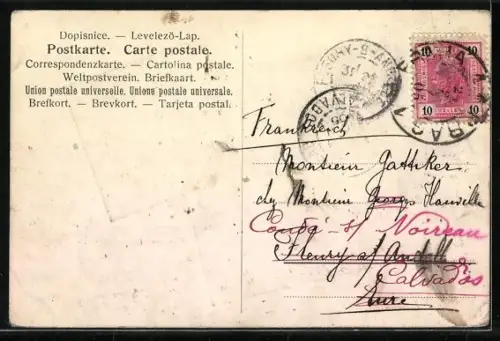 Dopisnice. — Levelező-Lap.
Postkarte. Carte postale.
Correspondenzkarte. — Cartolina postale.
Weltpostverein. Briefkaart.
Union postale universelle. Unions postale universale.
Brefkort. — Brevkort. — Tarjeta postal.
10 10
10 10
PRAG 1
CALVADOS
Frankreich
Monsieur Gattiker
chez Monsieur Georges
Condé s/ Noireau
Fleury s/ Andelle
Calvados
Eure